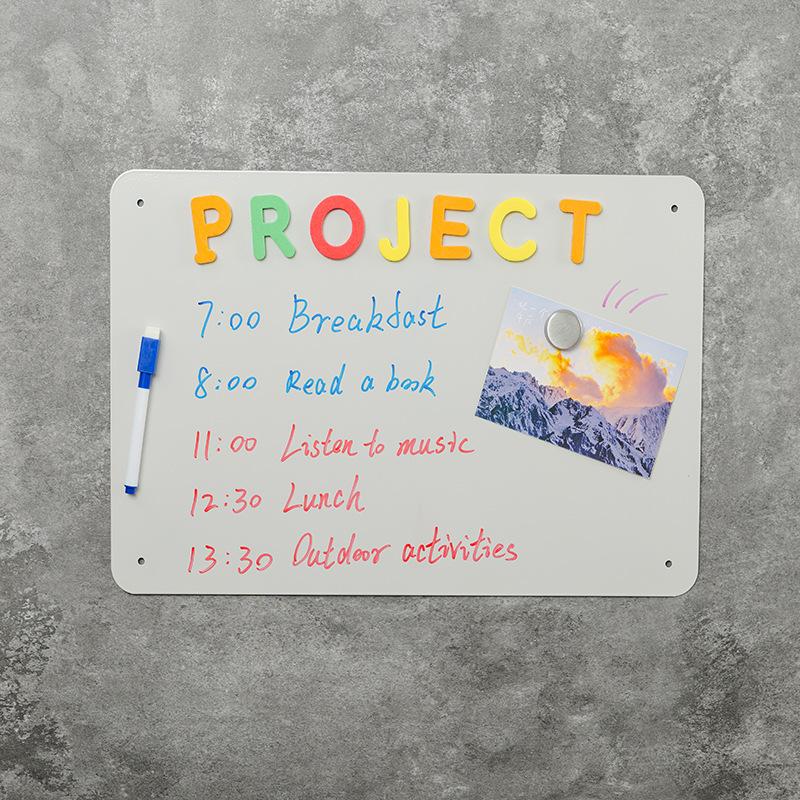 PROJECT
7:00 Breakfast
8:00 Read a book
11:00 Listen to music
12:30 Lunch
13:30 Outdoor activities